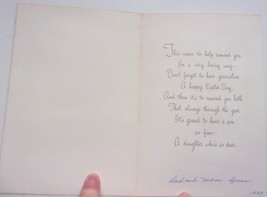 This comes to help remind you
In a very loving way—
Don't forget to have yourselves
A happy Easter Day,
And then it's to remind you both
That always through the year
It's grand to have a son
so fine—
A daughter who's so dear.
Dad and Mom